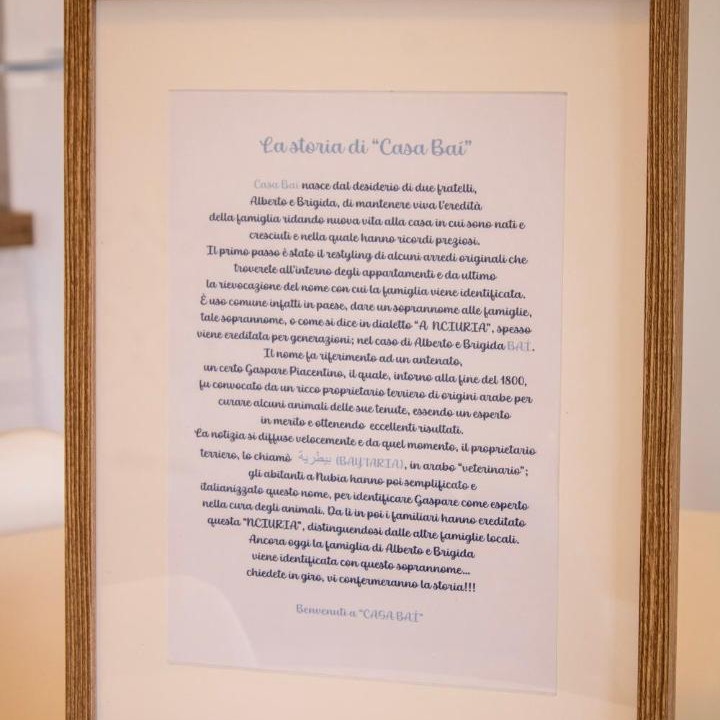 La storia di "Casa Baí"
Casa Baí nasce dal desiderio di due fratelli,
Alberto e Brigida, di mantenere viva l'eredità
della famiglia ridando nuova vita alla casa in cui sono nati e
cresciuti e nella quale hanno ricordi preziosi.
Il primo passo è stato il restyling di alcuni arredi originali che
troverete all'interno degli appartamenti e da ultimo
la rievocazione del nome con cui la famiglia viene identificata.
È uso comune infatti in paese, dare un soprannome alle famiglie,
tale soprannome, o come si dice in dialetto "A NCIURIA", spesso
viene ereditata per generazioni; nel caso di Alberto e Brigida BAÍ.
Il nome fa riferimento ad un antenato,
un certo Gaspare Piacentino, il quale, intorno alla fine del 1800,
fu convocato da un ricco proprietario terriero di origini arabe per
curare alcuni animali delle sue tenute, essendo un esperto
in merito e ottenendo eccellenti risultati.
La notizia si diffuse velocemente e da quel momento, il proprietario
terriero, lo chiamò بيطرية (BAYTARIA), in arabo "veterinario";
gli abitanti a Nubia hanno poi semplificato e
italianizzato questo nome, per identificare Gaspare come esperto
nella cura degli animali. Da lì in poi i familiari hanno ereditato
questa "NCIURIA", distinguendosi dalle altre famiglie locali.
Ancora oggi la famiglia di Alberto e Brigida
viene identificata con questo soprannome...
chiedete in giro, vi confermeranno la storia!!!
Benvenuti a "CASA BAÍ"